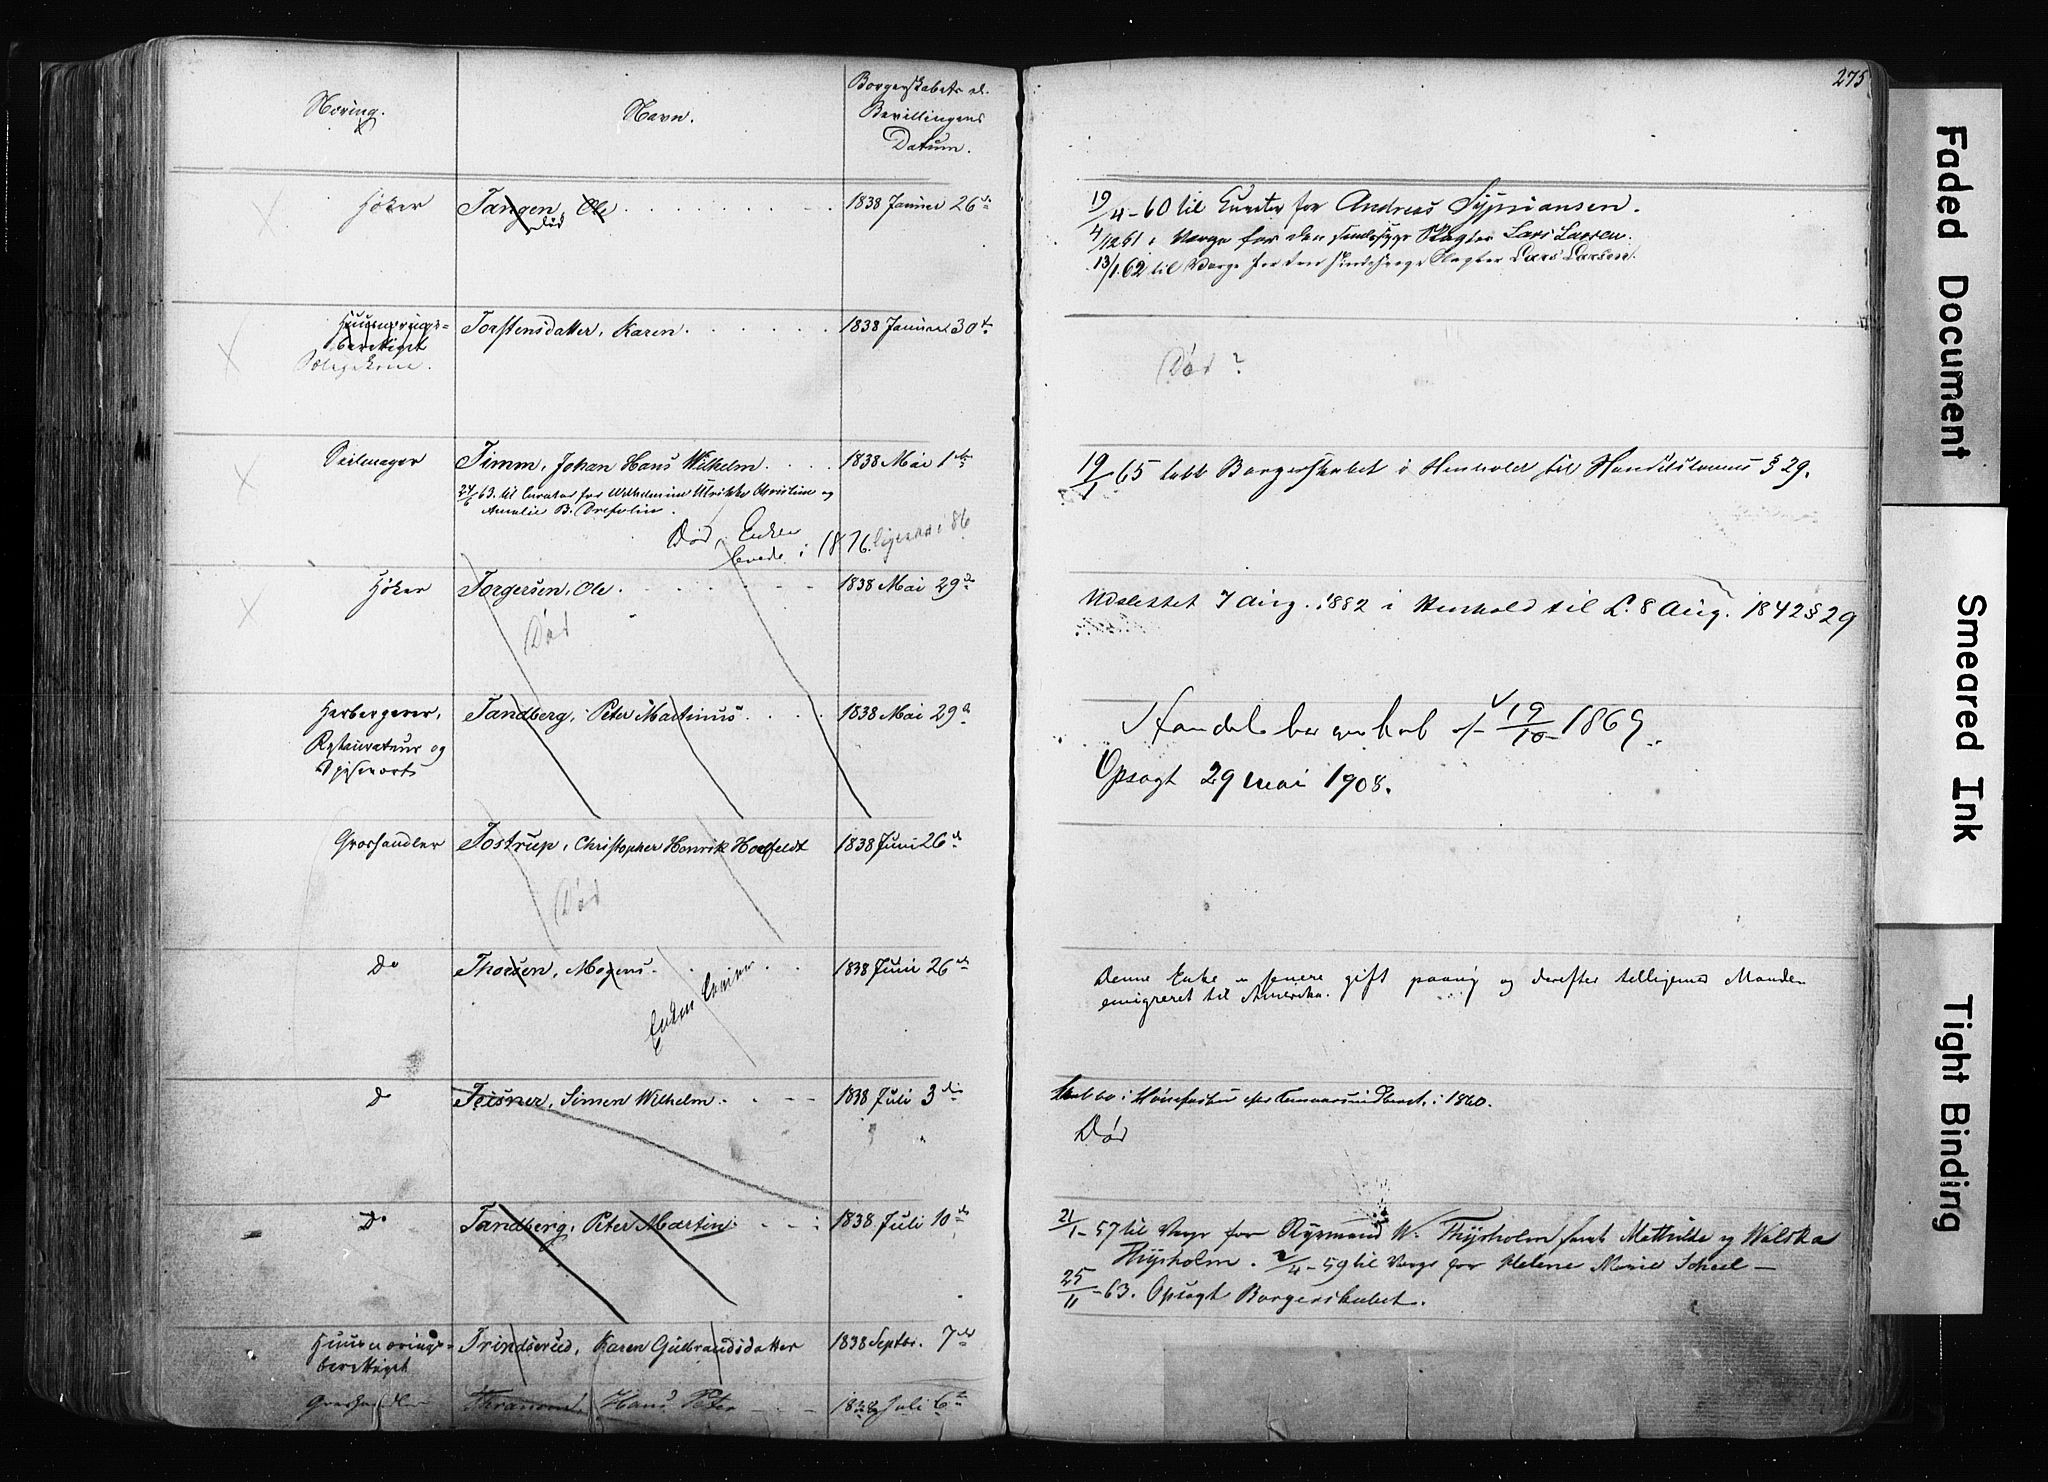 275
Næring.
Navn.
Borgerskabets el.
Bevillingens
Datum.
Høker
Tangen, Ole
död
1838 Januar 26de
19/4 - 60 til Curator for Andreas Sypriansen.
4/12 61 i Værge for den sindssyge Slagter Lars Larsen.
13/1 62 til Værge for den sindssyge Slagter Lars Larsen.
Huusnærings-
berettiget
Torstensdatter, Karen.
1838 Januar 30te
Død ?
Seilmager
Timm, Johan Hans Wilhelm.
1838 Mai 1ste
63. til Curator for Wilhelmine Ulrikke Christine og
Amalie B.
Død, Enken
levede i 1876. ligesaa i 86
19/1 65 tabt Borgerskabet i Henhold til Handelsloven § 29.
Høker
Torgersen, Ole.
1838 Mai 29de
Død
Udslettet 7 Aug. 1882 i Henhold til L. 8 Aug. 1842 § 29
Herbergerer,
Restaurateur og
Spisevert
Tandberg, Peter Martinus
1838 Mai 29de
Handelsborgerskab af 19/10 1869
Opsagt 29 mai 1908.
Groshandler
Tostrup, Christopher Henrik Holfeldt
1838 Juni 26de
Død
Do
Thorsen, Mogens.
1838 Juni 26de
Enken
Denne Enke er senere gift paany og derefter tilligemed Manden
emigreret til Amerika.
Do
Teisner, Simen Wilhelm.
1838 Juli 3die
i Hønefos i 1860.
Død
Do
Tandberg, Peter Martin
1838 Juli 10de
21/1 - 57 til Værge for W. Thysholm samt Mathilde og Walska
Thysholm. 2/4 - 59 til Værge for Helene Marie Scheel
25/11 - 63. Opsagt Borgerskabet.
Huusnærings-
berettiget
Trindserud, Karen Gulbrandsdatter
1838 Septbr. 7de
Grosshandler
Hans Peter
1838 Juli 6te
Faded Document
Smeared Ink
Tight Binding